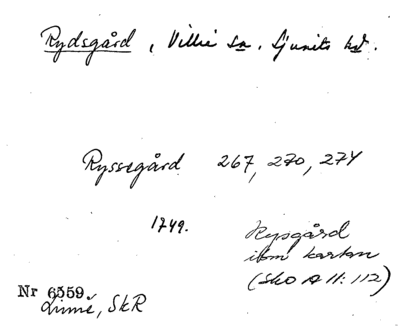 Rydsgård, Villie sn. Ljunits hd.
Ryssegård 267, 270, 274
1749.
Rysgård
iom kartan
(Sko A II: 112)
Nr 6559
Linné, SkR